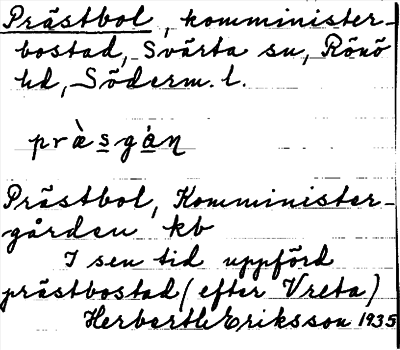 Prästbol, komminister-
bostad, Svärta sn, Rönö
hd, Söderm. l.
pràsgán
Prästbol, Komminister-
gården kb
I sen tid uppförd
prästbostad (efter Vreta)
Herberth Eriksson 1935